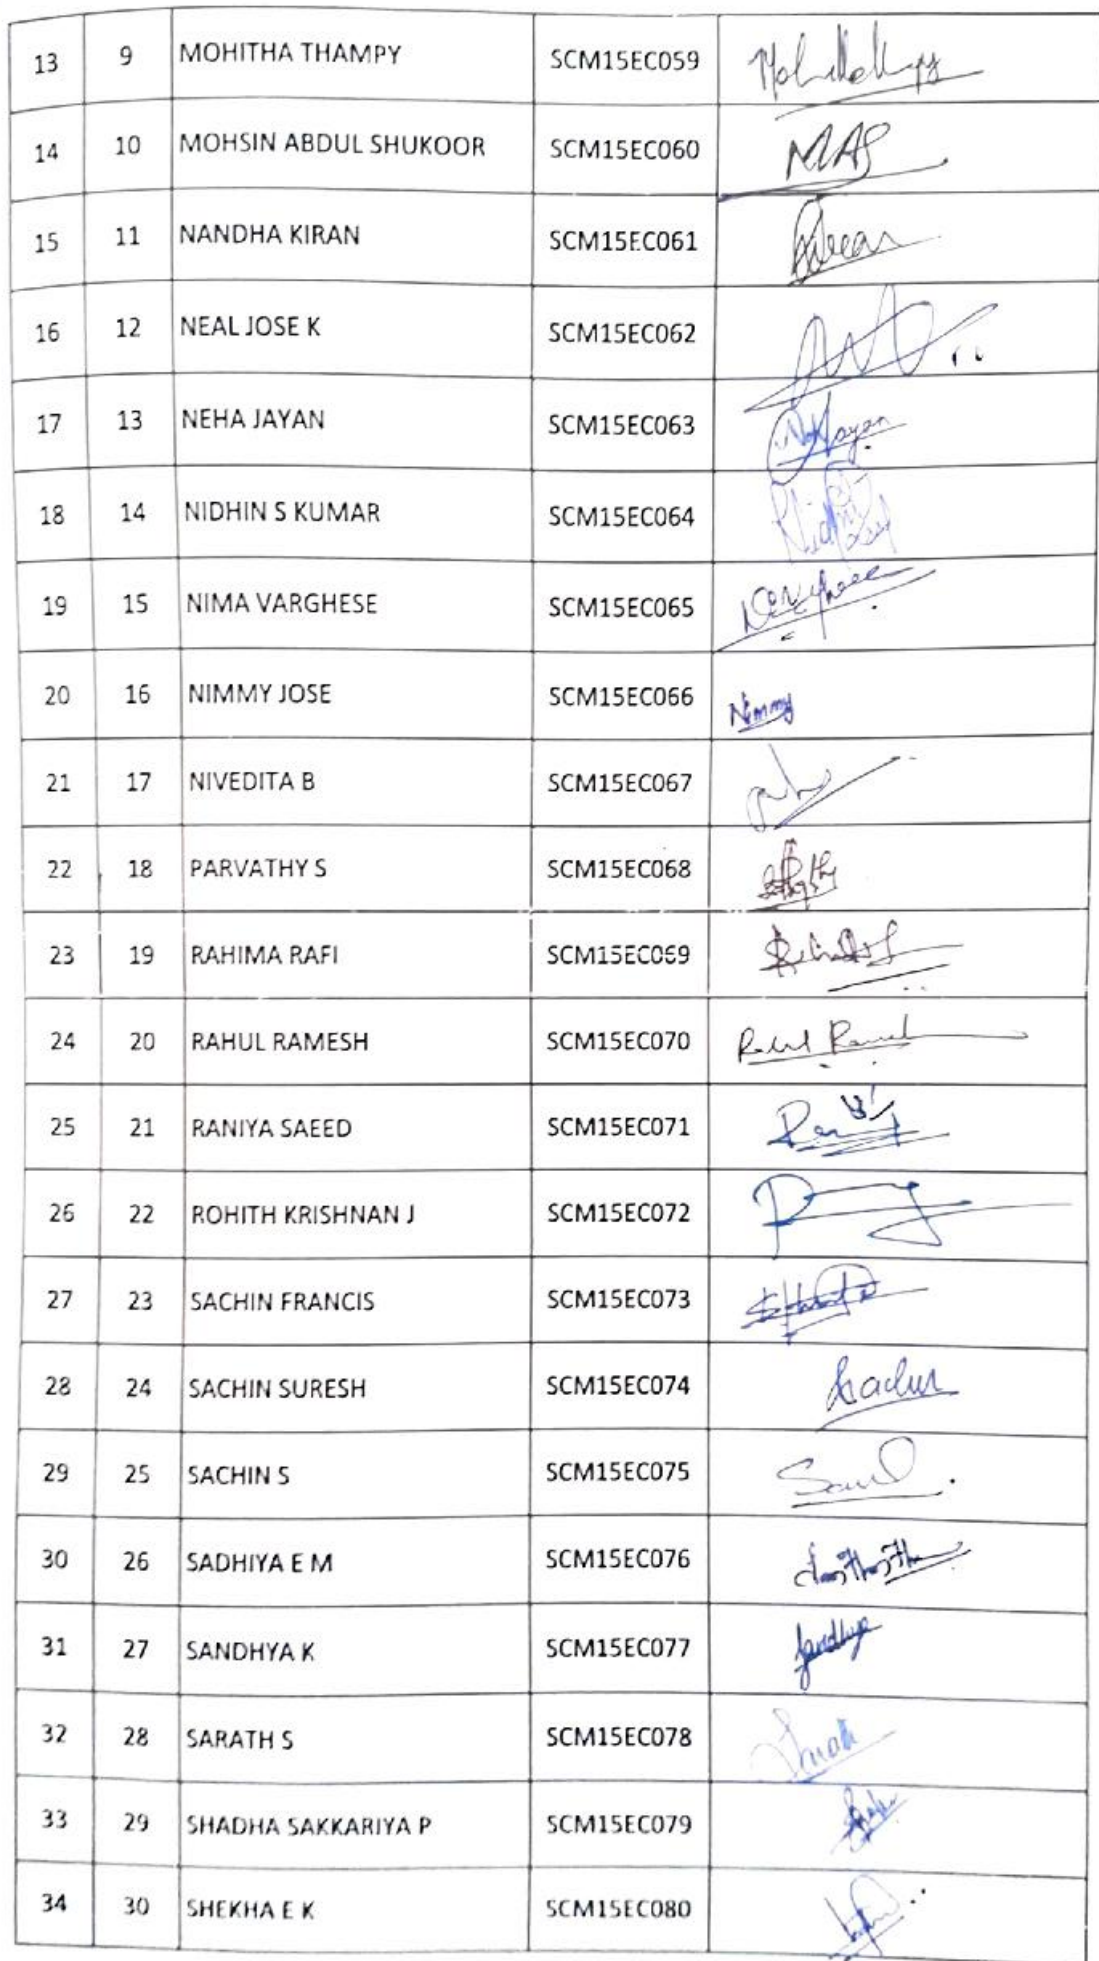 13 9 MOHITHA THAMPY SCM15EC059
14 10 MOHSIN ABDUL SHUKOOR SCM15EC060 MAS
15 11 NANDHA KIRAN SCM15EC061
16 12 NEAL JOSE K SCM15EC062
17 13 NEHA JAYAN SCM15EC063
18 14 NIDHIN S KUMAR SCM15EC064
19 15 NIMA VARGHESE SCM15EC065
20 16 NIMMY JOSE SCM15EC066 Nimmy
21 17 NIVEDITA B SCM15EC067
22 18 PARVATHY S SCM15EC068
23 19 RAHIMA RAFI SCM15EC069
24 20 RAHUL RAMESH SCM15EC070
25 21 RANIYA SAEED SCM15EC071
26 22 ROHITH KRISHNAN J SCM15EC072
27 23 SACHIN FRANCIS SCM15EC073
28 24 SACHIN SURESH SCM15EC074 Sachin
29 25 SACHIN S SCM15EC075
30 26 SADHIYA E M SCM15EC076
31 27 SANDHYA K SCM15EC077 Sandhya
32 28 SARATH S SCM15EC078
33 29 SHADHA SAKKARIYA P SCM15EC079
34 30 SHEKHA E K SCM15EC080